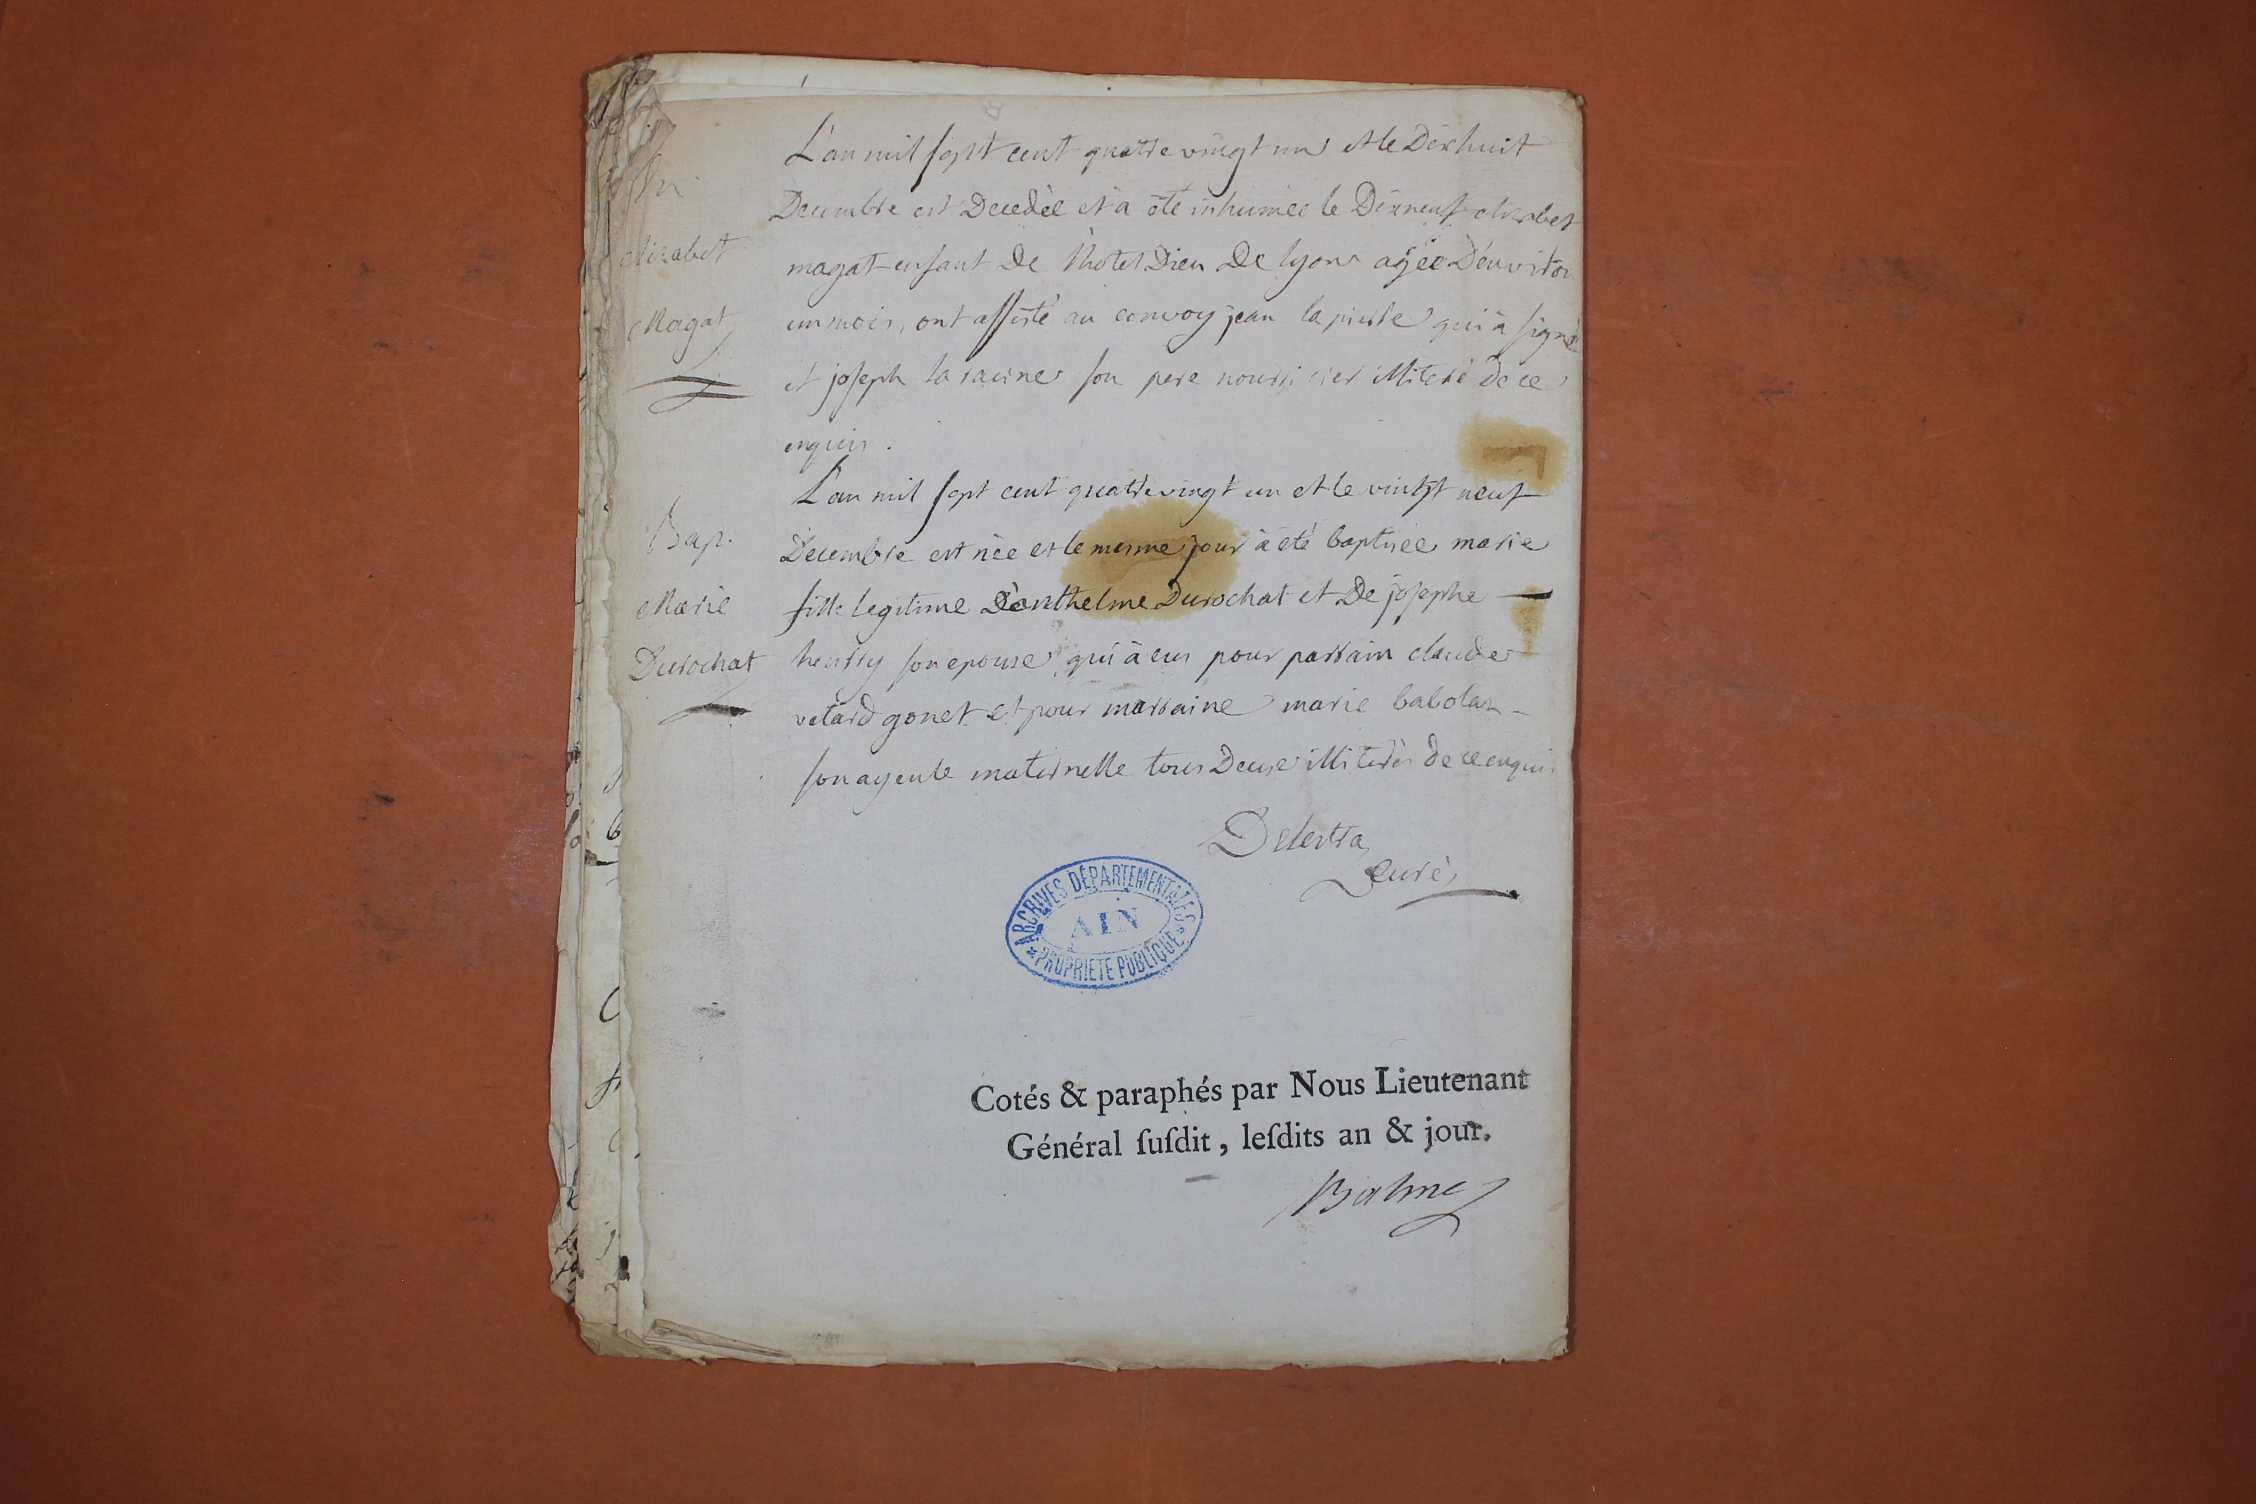 L'an mil sept cent quatre vingt un et le Dixhuit
Decembre est Decedèe et à èté inhumèe le Dixneuf elizabet
magat enfant De l'hotel Dieu De lyon agèe D'environ
un mois, ont assisté au convoy jean la pierre qui à signè
et joseph la racine son pere nourricier illiteré de ce
enquis.
elizabet
Magat
L'an mil sept cent quatre vingt un et le vintgt neuf
Decembre est nèe et le mesme jour à eté baptisèe marie
fille legitime D'anthelme Durochat et De josephe
henrry son epouse qui à eus pour parrain claude
vetard gonet et pour marraine marie babolan
son ayeule maternelle tous Deux illiterès de ce enquis
Bap.
Marie
Durochat
Delestra
Curè
ARCHIVES DÉPARTEMENTALES
AIN
PROPRIÉTÉ PUBLIQUE
Cotés & paraphés par Nous Lieutenant
Général ſuſdit, leſdits an & jour.
Balme